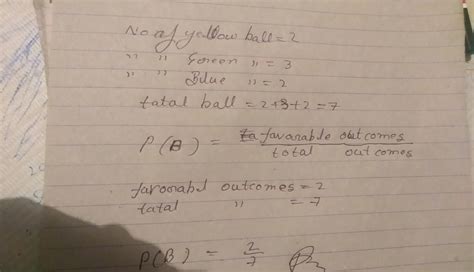 No of yellow ball = 2
" " Green " = 3
" " Blue " = 2
tatal ball = 2+3+2 = 7
P(B) = favarable outcomes
total outcomes
favorabl outcomes = 2
tatal " = 7
P(B) = 2/7